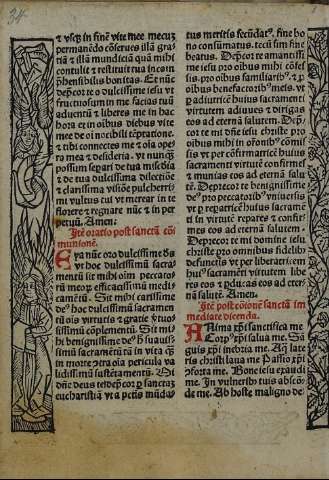 34
⁊ vsq; in finē vite mee mecuz
permanēdo cōserues illā gra
tiā ⁊ illā mundiciā quā mihi
contulit ⁊ restituit tua incōp̄
hensibilis bonitas. Et nūc
dep̄cor te o dulcissime iesu vt
fructuosum in me facias tuū
aduentū ⁊ liberes me in hac
hora ⁊ in oībus diebus vite
mee ab oi nocibili tēptatione.
⁊ tibi connectes me ⁊ oīa ope
ra mea ⁊ desideria. vt nunq̄
possim separi de tua miscdia
⁊ de tua dulcissima dilectiōe
⁊ clarissima visiōe pulcherri
mi vultus tui vt merear in te
florere ⁊ regnare nūc ⁊ in per
petuū. Amen:
Itē oratio post sanctā cō
munionē.
Epa nūc oro dulcissime ds
vt hoc dulcissimū sacra
mentū sit mihi oīm peccato
rū meorꝝ efficacissimū medi
camētū. Sit mihi carissime
deꝰ hoc dulcissimū sacramen
tū oīs virtutis ⁊ gratie ⁊ tuo
tissimū cōplementū. Sit mi
hi benignissime deꝰ hͦ suauis
simū sacramētū tā in vita q̄
in morte ꝯtra oīa pericula va
lidissimū sustētamentū. Di
gnē deus te dep̄cor ꝑ sanctaꝫ
eucharistiā vt a petis mūdaꝰ
tuus meritis fecūdatꝰ. fine ho
no consūmatus. tecū sim sine
beatus. Dep̄cor te amantissi
me iesu pro oībus mihi cōfes
sis. pro oibus familiaribꝰ. ⁊ p
oibus benefactoribꝰ meis. vt
ꝑ adiutricē huius sacramenti
virtutem adiuues ⁊ dirigas
eos ad eternā salutem. Dep̄
cor te mi dn̄e iesu christe pro
oibus mihi in oronībꝰ comis
sis vt per cōfirmatricē huius
sacramenti virtutē confirmes
⁊ munias eos ad eternā salu
tē. Deprecor te benignissime
dēꝰ pro peccatoribꝰ vniuersis
vt ꝑ reparatricē huius sacramē
ti virtutē repares ⁊ confir
mes eos ad eternam salutem.
Deprecor te mi domine iesu
christe pro omnibus fidelibꝰ
defunctis vt per liberatricem
huiꝰ sacramēti virtutem libe
res eos ⁊ ꝑducas eos ad eter
nā salutē. Amen.
Itē post cōionē sanctā im
mediate dicenda.
ANima xp̄i sanctifica me
Corpꝰ xp̄i salua me. Sā
guis xp̄i inebria me. Aq̄ late
ris christi laua me Passio xp̄i
ꝯforta me. Bone iesu exaudi
me. In vulneribꝰ tuis abscō
de me. Ab hoste maligno de